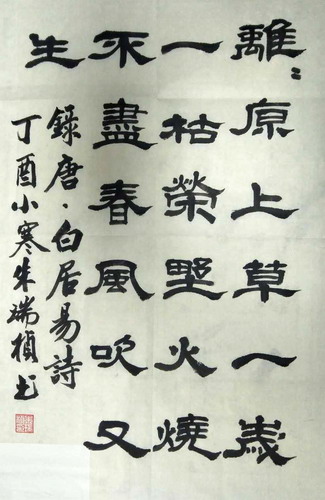 離〻原上草一歲
一枯榮野火燒
不盡春風吹又
生
錄唐·白居易詩
丁酉小寒朱瑞楨书